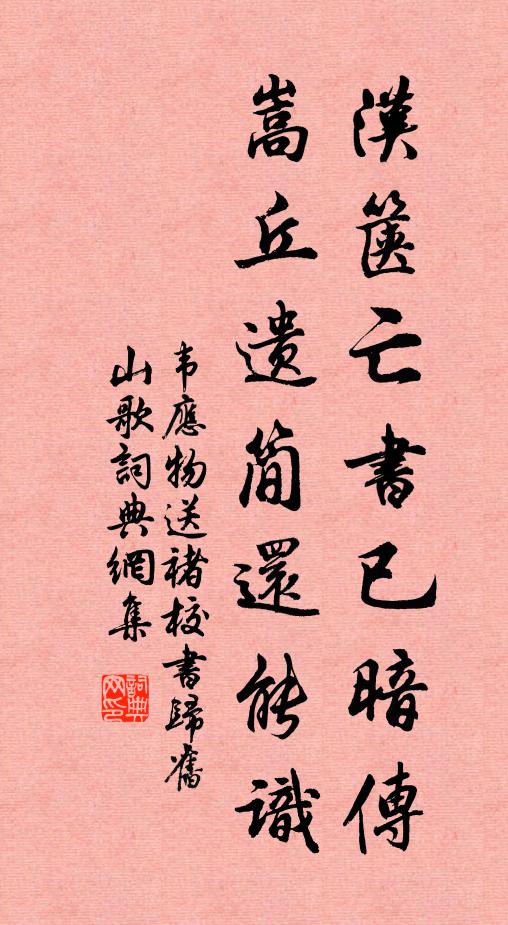 漢篋亡書已暗傳
嵩丘遺簡還能識
韦應物送褚校書歸舊
山歌詞典網集
詞典
网印